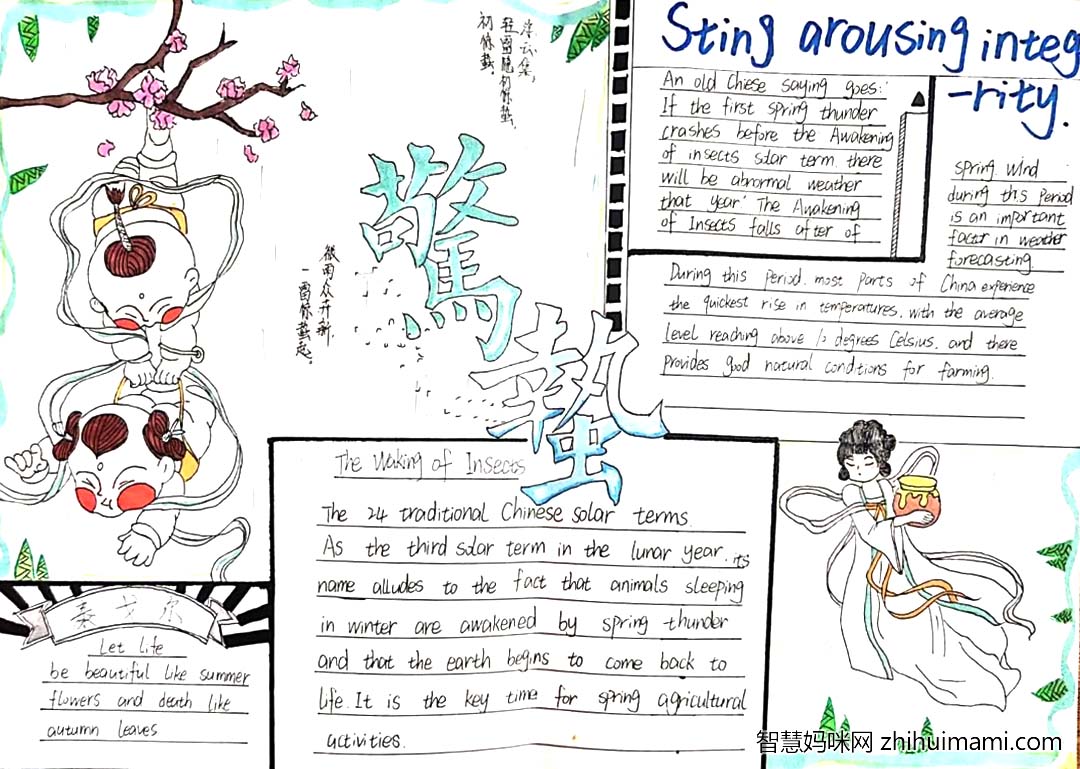 Sting arousing integ
-rity.
An old Chiese saying goes:
If the first spring thunder
crashes before the Awakening
of insects solar term, there
will be abnormal weather
that year' The Awakening
of Insects falls after of
spring wind
during this period
is an important
factor in weather
forecasting
During this period, most parts of China experience
the quickest rise in temperatures, with the average
level reaching above 10 degrees Celsius, and there
provides good natural conditions for farming.
驚
蟄
微雨众卉新,
一雷惊蛰起。
初惊蛰
The Waking of Insects
The 24 traditional Chinese solar terms.
As the third solar term in the lunar year, its
name alludes to the fact that animals sleeping
in winter are awakened by spring thunder
and that the earth begins to come back to
life. It is the key time for spring agricultural
activities.
泰戈尔
Let life
be beautiful like summer
flowers and death like
autumn leaves
智慧妈咪网 zhihuimami.com